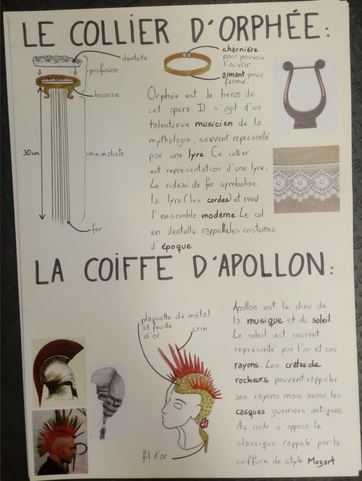 LE COLLIER D'ORPHÉE:
dentelle
profusion
bronze
30cm
minimaliste
fer
charnière
pour pouvoir
l'ouvrir
aimant pour
fermé
Orphée est le héros de
cet opéra. Il s'agit d'un
talentueux musicien de la
mythologie, souvent représenté
par une lyre. Ce collier
est représentation d'une lyre.
Le rideau de fer symbolise
la lyre (les cordes) et rend
l'ensemble moderne. Le col
en dentelle rappelle les costumes
d'époque.
LA COIFFE D'APOLLON:
plaquette de métal
et feuille
d'or
crin
fil d'or
Apollon est le dieu de
la musique et du soleil.
Le soleil est souvent
représenté par l'or et ses
rayons. Les crêtes de
rockeurs peuvent rappeler
ses rayons mais aussi les
casques guerriers antiques.
Au rock s'oppose le
classique rappelé par la
coiffure de style Mozart.